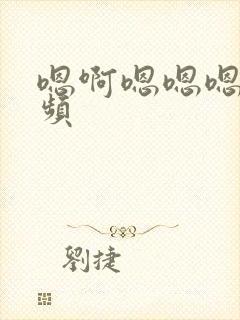 嗯啊嗯嗯嗯
频
劉捷